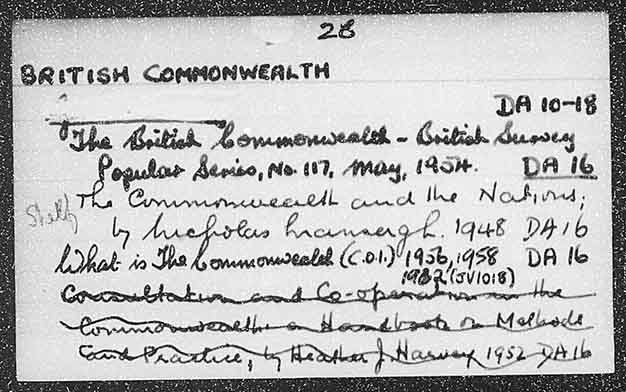 28
BRITISH COMMONWEALTH
DA 10-18
The British Commonwealth - British Survey
Popular Series, No. 117, May, 1954. DA 16
Shelf
The Commonwealth and the Nations,
by Nicholas Mansergh. 1948 DA 16
What is The Commonwealth (C.O.I.) 1956, 1958 DA 16
1982 (JV1018)
Consultation and Co-operation in the
Commonwealth: a Handbook on Methods
and Practice, by Heather J. Harvey 1952 DA 16